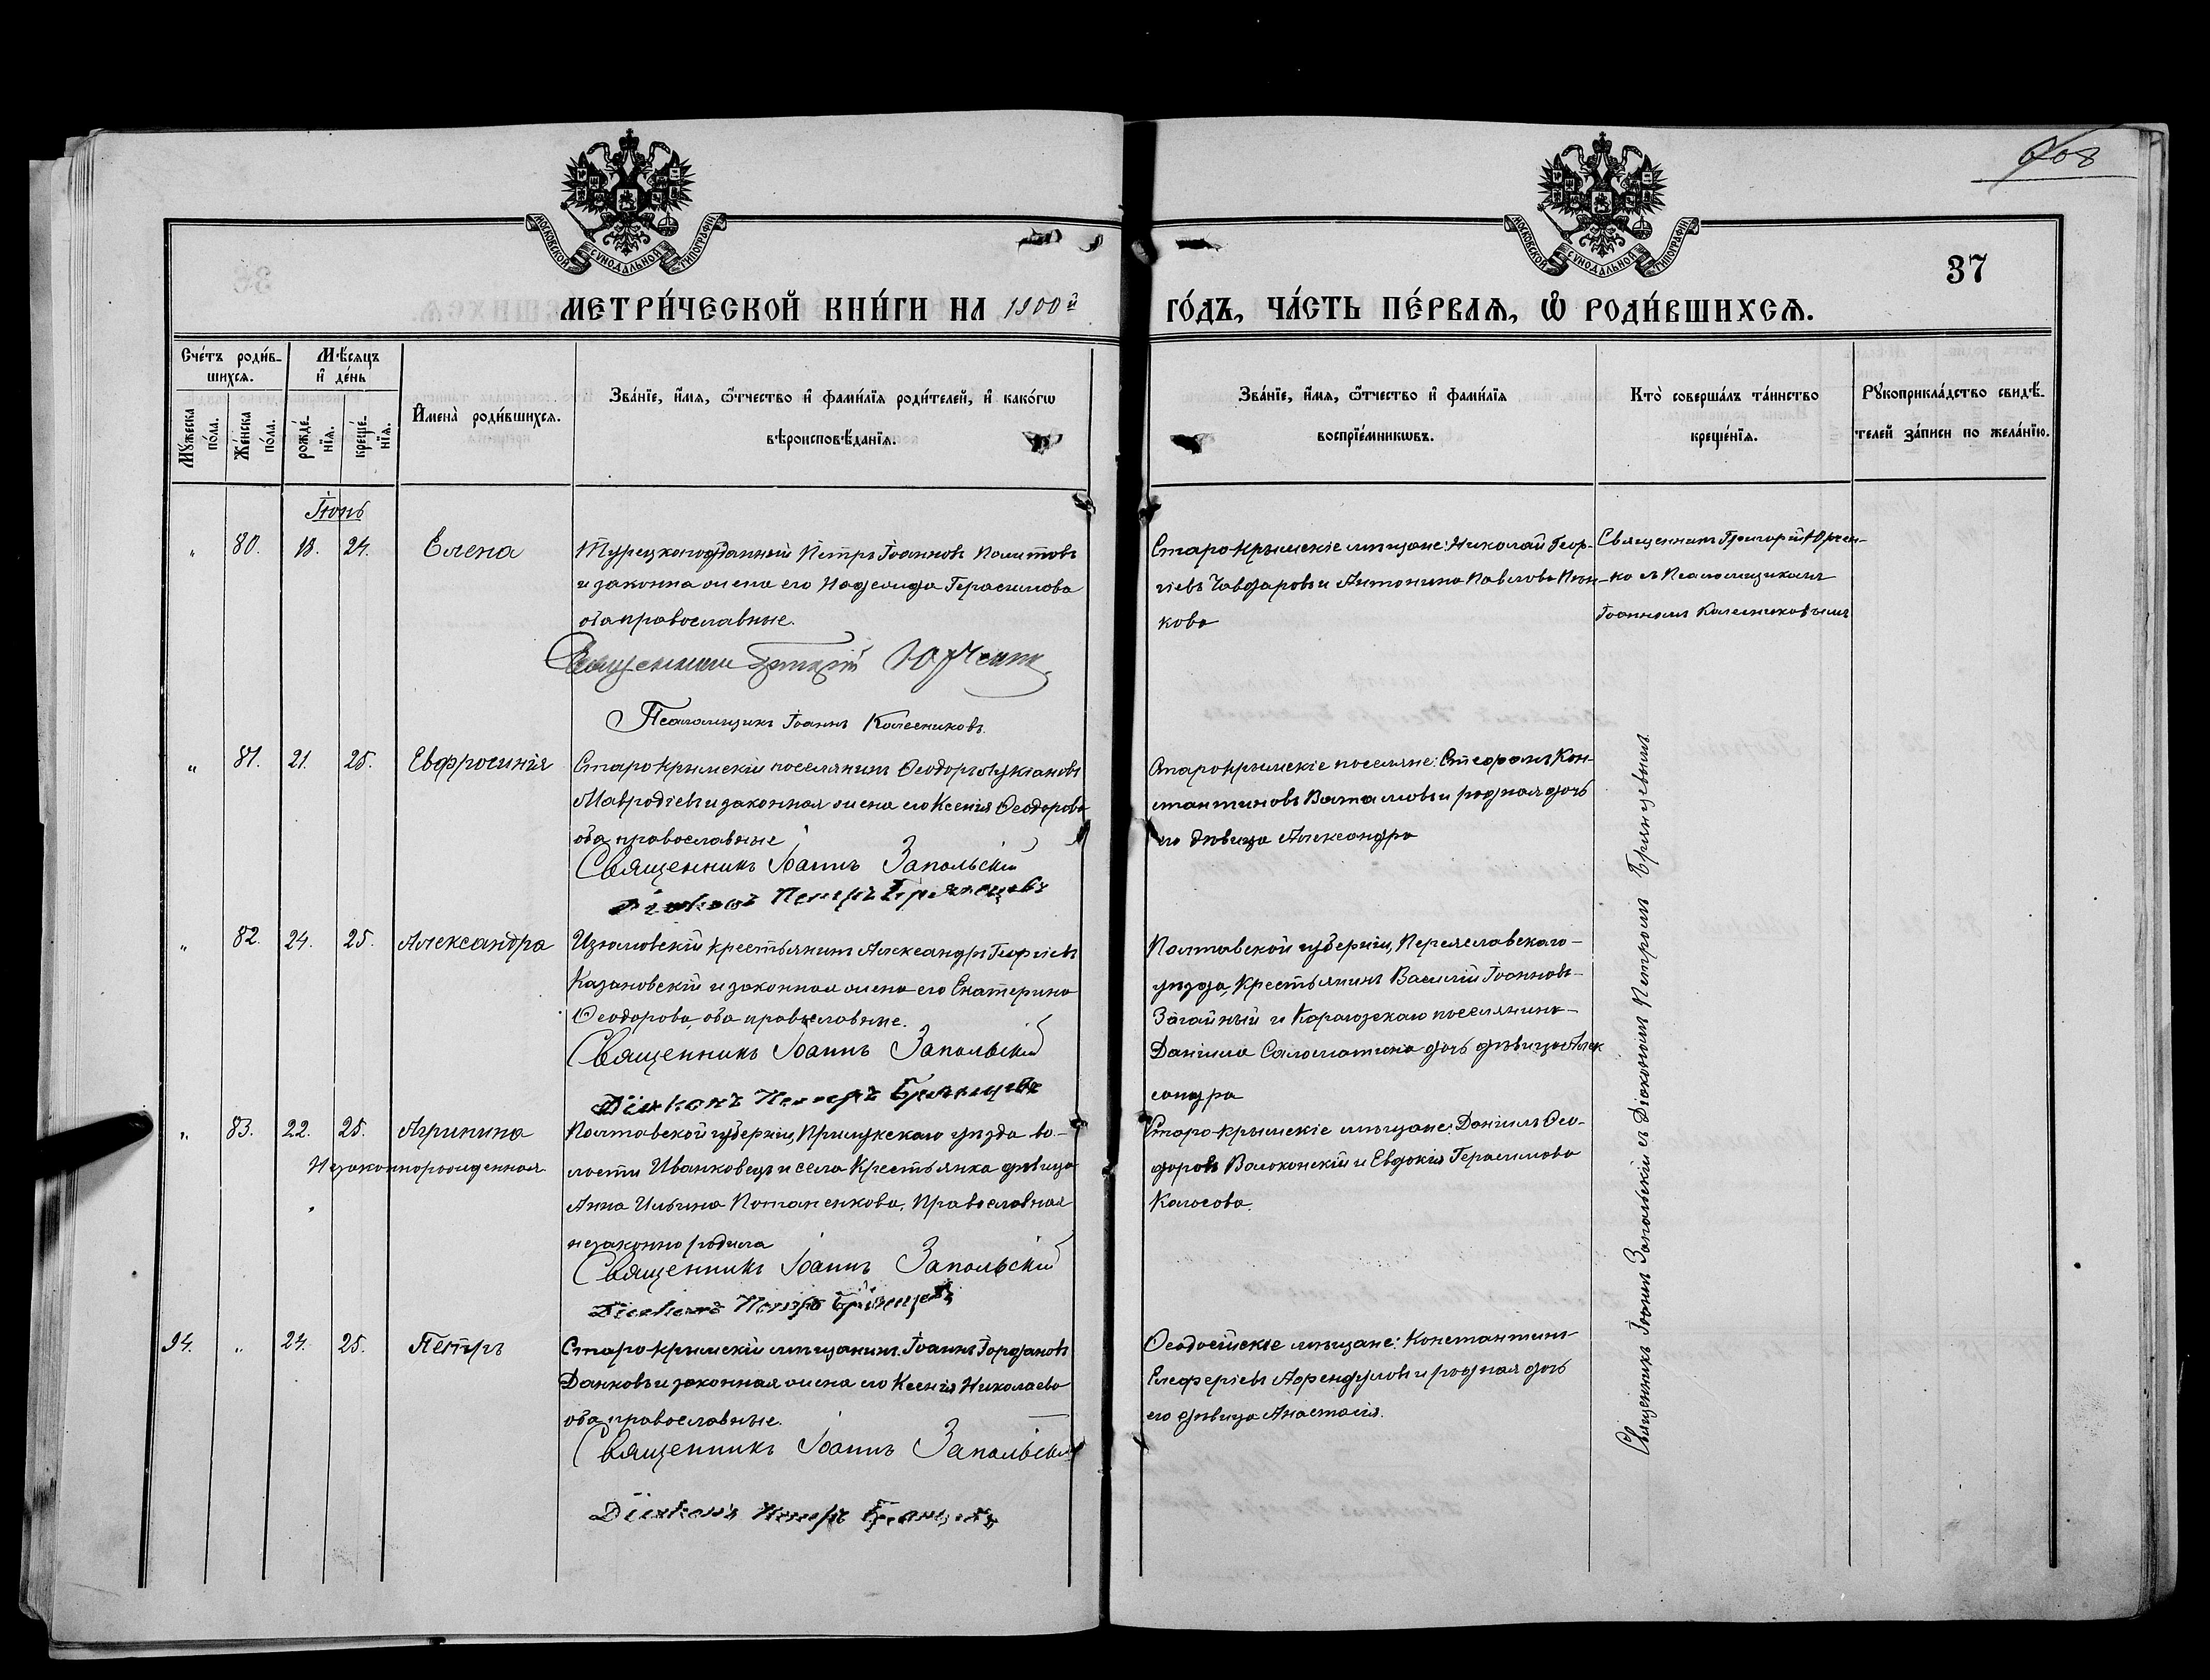 608
МОСКОВСКОЙ СУНОДАЛЬНОЙ ТИПОГРАФІИ
МОСКОВСКОЙ СУНОДАЛЬНОЙ ТИПОГРАФІИ
37
МЕТРИ́ЧЕСКОЙ КНИ́ГИ НА 1900й
ГО́ДЪ, ЧА́СТЬ ПЕ́РВАѦ, Ѽ РОДИ́ВШИХСѦ.
Сче́тъ роди́в-
шихсѧ.
Мꙋ́жеска по́ла.
Же́нска по́ла.
Мѣ́сяцъ
и҆ де́нь
рожде́-нїѧ.
креще́-нїѧ.
И҆мена̀ роди́вшихсѧ.
Зва́нїе, и҆́мѧ, ѻ҆́тчество и҆ фами́лїѧ роди́телей, и҆ како́гѡ
вѣроисповѣ́данїѧ.
Зва́нїе, и҆́мѧ, ѻ҆́тчество и҆ фами́лїѧ
воспрїе́мникѡвъ.
Кто̀ соверша́лъ та́инство
креще́нїѧ.
Рꙋкоприкла́дство свидѣ́-
телей за́писи по жела́нїю.
Іюнь
" 80. 18. 24. Елена
Турецкоподданный Петръ Іоанновъ Политовъ
и законна жена его Надежда Герасимова
оба православные.
Священникъ Григорій Юрченко
Псаломщикъ Іоаннъ Колесниковъ.
Старокрымскіе мѣщане: Николай Геор-
гіевъ Чавдаровъ и Антонина Павлова Пен-
кова
Священникъ Григорій Юрчен-
ко съ Псаломщикомъ
Іоанномъ Колесниковымъ
" 81. 21. 25. Евфросинія
Старокрымскій поселянинъ Ѳеодоръ Лукіановъ
Мавродіевъ и законная жена его Ксенія Ѳеодорова
оба православные
Священникъ Іоаннъ Запольскій
Діаконъ Петръ Брянцевъ
Старокрымскіе поселяне: Стефанъ Кон-
стантиновъ и родная дочь
его дѣвица Александра
" 82. 24. 25. Александра
Изюмовскій крестьянинъ Александръ Георгіевъ
Казановскій и законная жена его Екатерина
Ѳеодорова, оба православные.
Священникъ Іоаннъ Запольскій
Діаконъ Петръ Брянцевъ
Полтавской губерніи, Переяславскаго
уѣзда, Крестьянинъ Василій Іоанновъ
Загайный и Карагозскаго поселянина
Даніила Саломатина дочь дѣвица Алек
сандра
" 83. 22. 25. Агрипина
Незаконнорожденная
Полтавской губерніи, Прилукскаго уѣзда во-
лости Иванковецъ и села Крестьянка дѣвица
Анна Ильина Потапенкова, Православная
незаконно родила
Священникъ Іоаннъ Запольскій
Діаконъ Петръ Брянцевъ
Старо-крымскіе мѣщане: Даніилъ Ѳео-
доровъ Волоконскій и Евдокія Герасимова
Колосова.
94. " 24. 25. Петръ
Старо-крымскій мѣщанинъ Іоаннъ Іордановъ
Данковъ и законная жена его Ксенія Николаева
оба православные.
Священникъ Іоаннъ Запольскій
Діаконъ Петръ Брянцевъ
Ѳеодосійскіе мѣщане: Константинъ
Елеферіевъ Афендуловъ и родная дочь
его дѣвица Анастасія.
Священникъ Іоаннъ Запольскій съ Діакономъ Петромъ Брянцевымъ